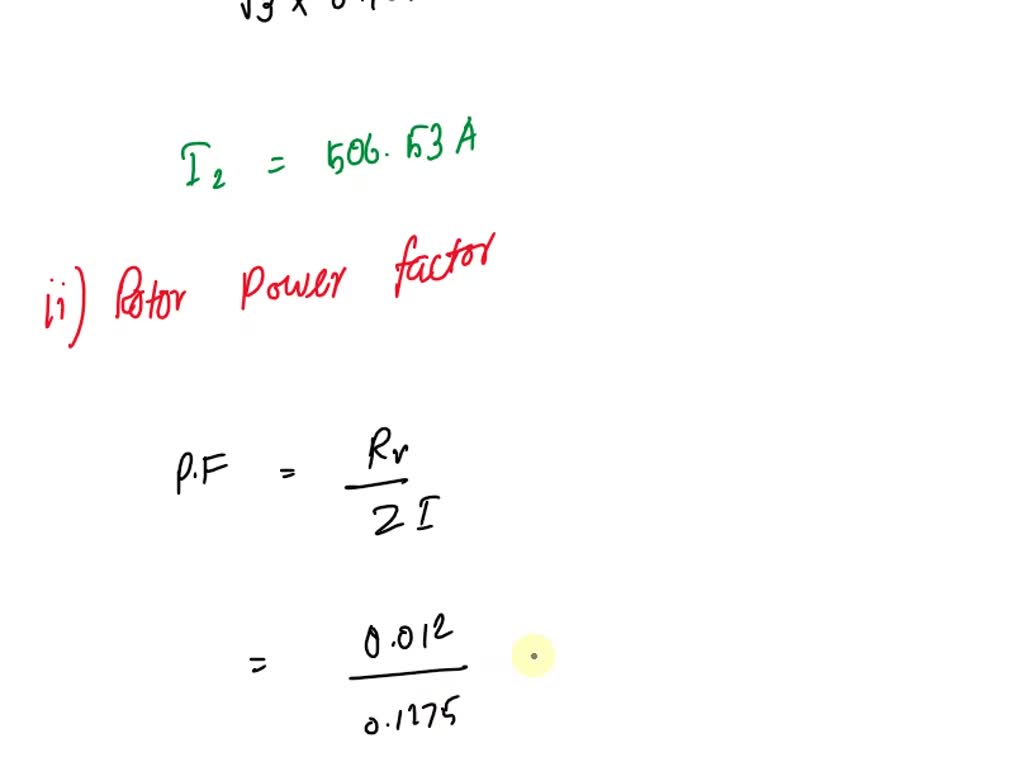 √3 ×
I2 = 506.53 A
ii) Rotor Power factor
P.F = Rr
ZI
= 0.012
0.1275